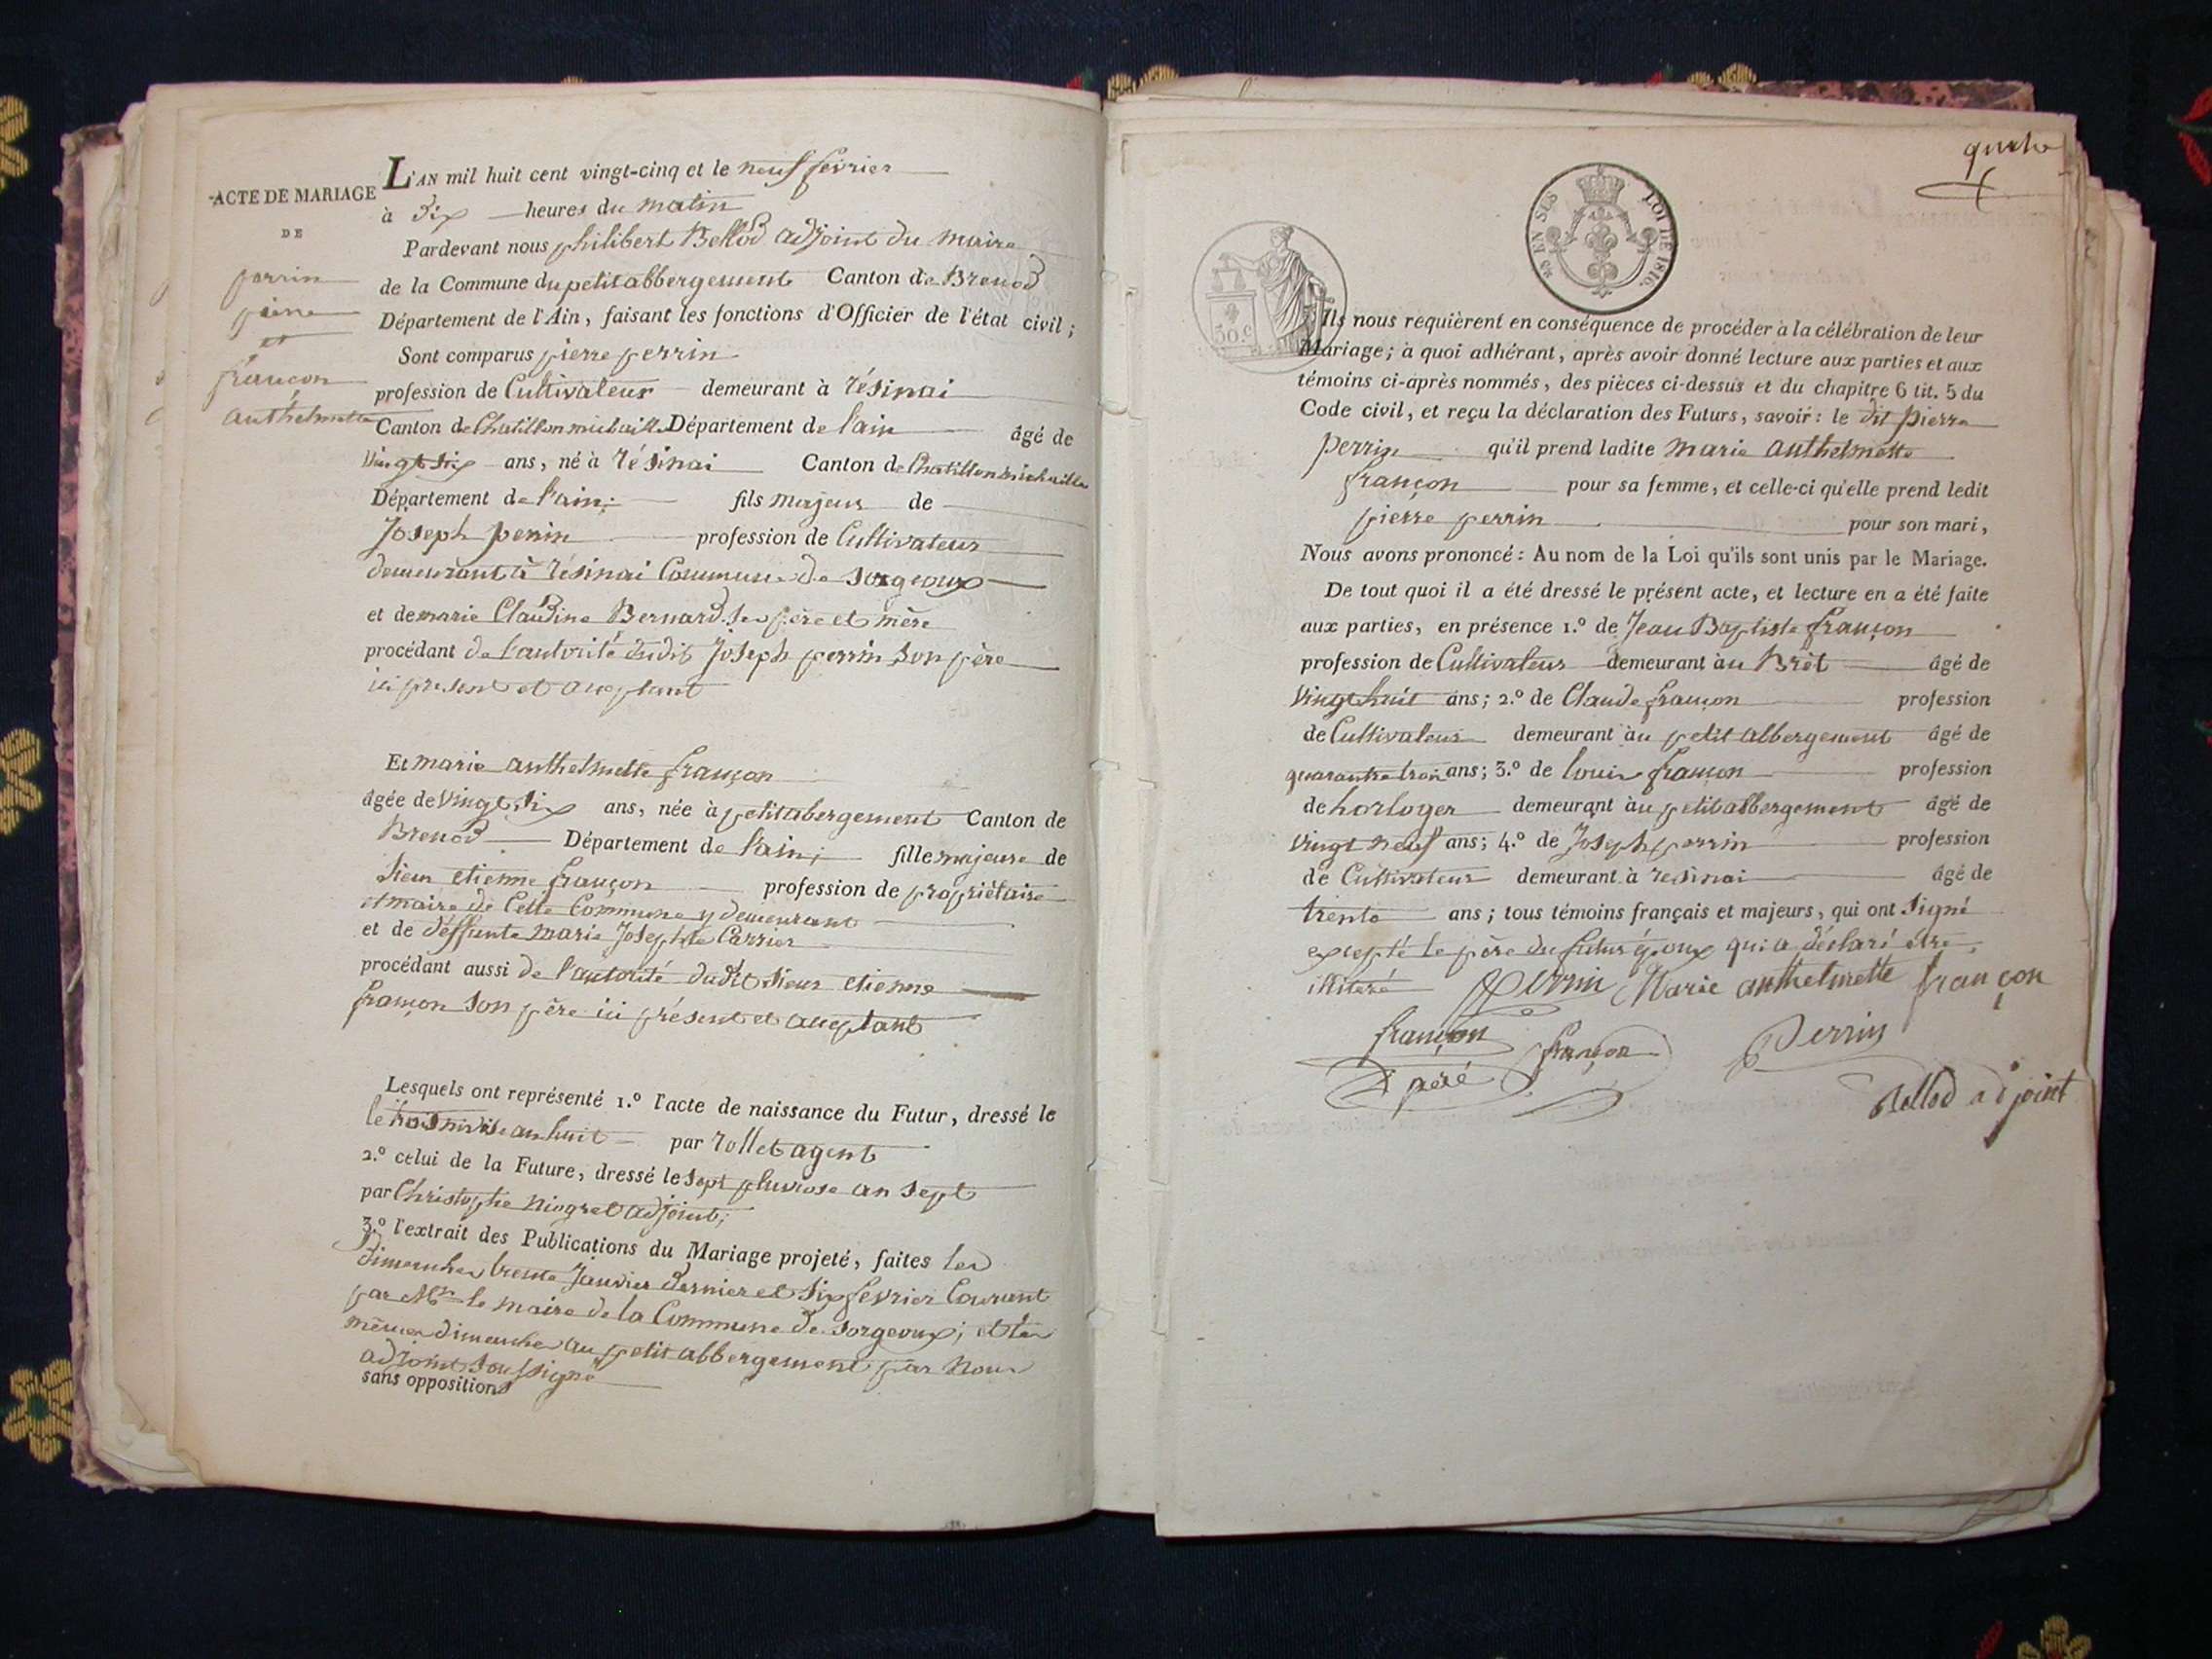 ACTE DE MARIAGE
DE
perrin
pierre
et
françon
anthelmette
L'AN mil huit cent vingt-cinq et le neuf fevrier
à dix heures du matin
Pardevant nous philibert Bellod adjoint du maire
de la Commune du petit abbergement Canton de Brenod
Département de l'Ain, faisant les fonctions d'Officier de l'état civil;
Sont comparus pierre perrin
profession de Cultivateur demeurant à résinai
Canton de Chatillon michaille Département de l'ain âgé de
vingt six ans, né à résinai Canton de Chatillon michaille
Département de l'ain; fils majeur de
Joseph perrin profession de Cultivateur
demeurant à résinai Commune de sorgeoux
et de marie Claudine Bernard ses père et mère
procédant de l'autorité dudit Joseph perrin son père
ici présent et acceptant
Et marie anthelmette françon
âgée de vingt six ans, née à petit abergement Canton de
Brenod Département de l'ain; fille majeure de
sieur etienne françon profession de propriétaire
et maire de Cette Commune y demeurant
et de deffunte marie Josephte Carrier
procédant aussi de l'autorité dudit sieur etienne
françon son père ici présent et acceptant
Lesquels ont représenté 1.º l'acte de naissance du Futur, dressé le
le trois nivose an huit par rollet agent
2.º celui de la Future, dressé le sept pluviose an sept
par Christophe niogret adjoint;
3.º l'extrait des Publications du Mariage projeté, faites les
Dimanches trente Janvier dernier et six fevrier Courant
par Mr. le maire de la Commune de sorgeoux; et les
mêmes dimanches au petit abbergement par nous
adjoint soussigné
sans oppositions
quatre
EN SUS
LOI DE 1816.
50.c
Ils nous requièrent en conséquence de procéder à la célébration de leur
Mariage; à quoi adhérant, après avoir donné lecture aux parties et aux
témoins ci-après nommés, des pièces ci-dessus et du chapitre 6 tit. 5 du
Code civil, et reçu la déclaration des Futurs, savoir: le dit pierre
perrin qu'il prend ladite marie anthelmette
françon pour sa femme, et celle-ci qu'elle prend ledit
pierre perrin pour son mari,
Nous avons prononcé: Au nom de la Loi qu'ils sont unis par le Mariage.
De tout quoi il a été dressé le présent acte, et lecture en a été faite
aux parties, en présence 1.º de Jean Baptiste françon
profession de Cultivateur demeurant àu Brèt âgé de
vingt huit ans; 2.º de Claude françon profession
de Cultivateur demeurant àu petit abbergement âgé de
quarante trois ans; 3.º de louis françon profession
de horloger demeurant àu petit abbergement âgé de
vingt neuf ans; 4.º de Joseph perrin profession
de Cultivateur demeurant à resinai âgé de
trente ans; tous témoins français et majeurs, qui ont signé
excepté le père du futur époux qui a déclaré être
illiteré perrin Marie anthelmette françon
françon françon Perrin
Bellod adjoint